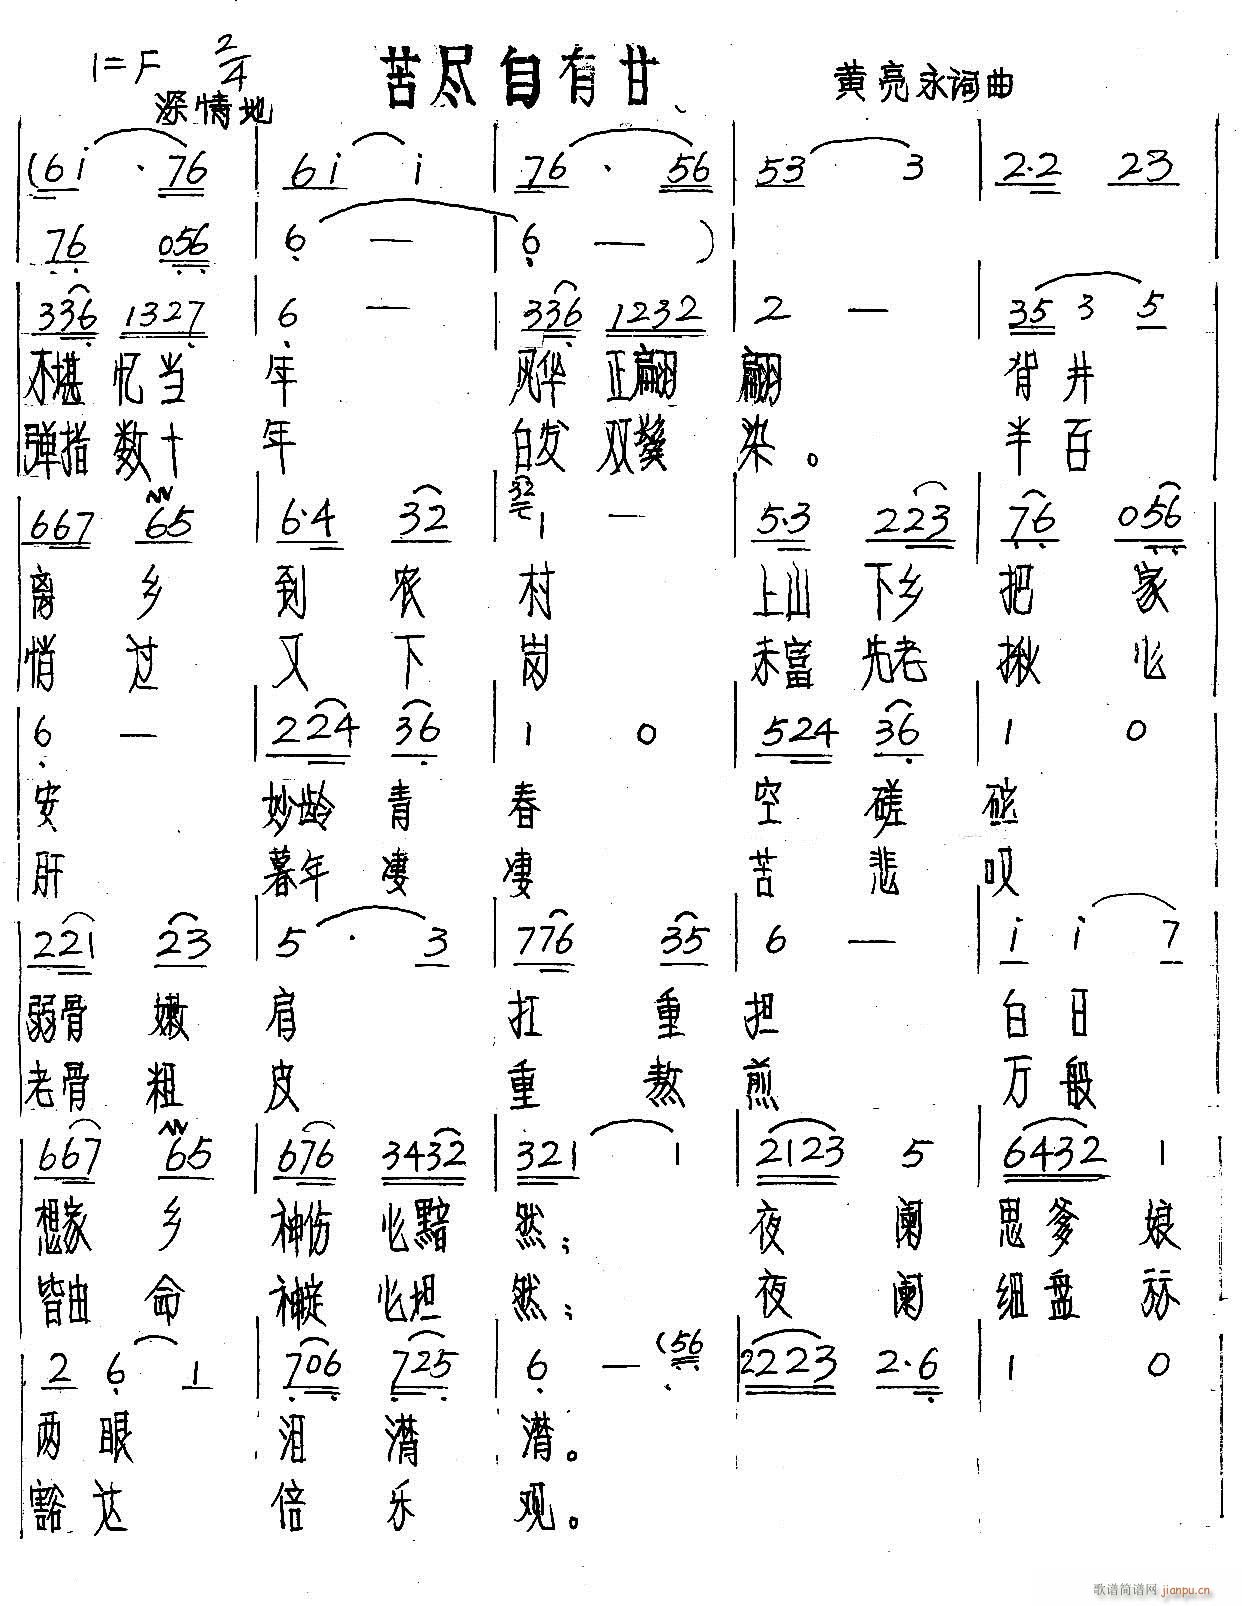 1=F 2/4 苦尽自有甘 黄亮永词曲
深情地
(6i·76 6i i 76·56 53 3 2·2 23
76 056 6 — 6 — )
336 1327 6 — 336 1232 2 — 35 3 5
不堪忆当年 风华正翩翩 背井
弹指数十年 白发双鬓染。 半百
667 65 6·4 32 32 1 — 5·3 223 76 056
离乡到农村 上山下乡把家
悄过又下岗 未富先老揪心
6 — 224 36 1 0 524 36 1 0
安 妙龄青春 空磋砣
肝 暮年凄凄 苦悲叹
221 23 5·3 776 35 6 — i i 7
弱骨嫩肩 扛重担 白日
老骨粗皮 重熬煎 万般
667 65 676 3432 321 1 2123 5 6432 1
想家乡 神伤心黯然; 夜阑思爹娘
皆由命 神定心坦然; 夜阑细盘算
2 6 1 706 725 6 — (56 2223 2·6 1 0
两眼泪潸潸。
豁达倍乐观。
歌谱简谱网 jianpu.cn